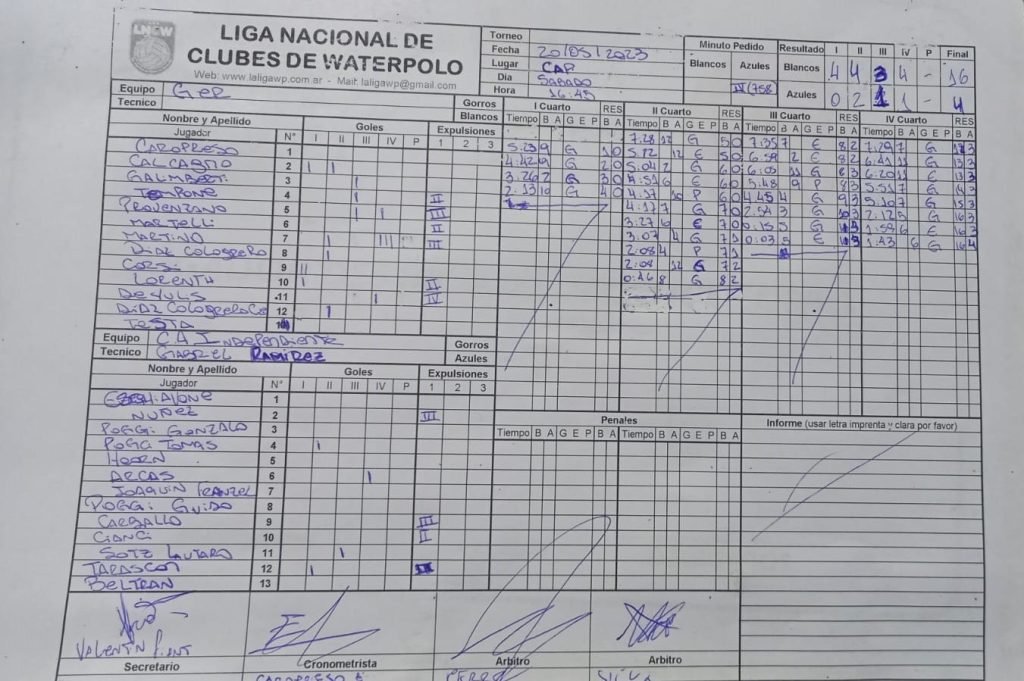 LNCW
LIGA NACIONAL DE
CLUBES DE WATERPOLO
Web: www.laligawp.com.ar - Mail: laligawp@gmail.com
Torneo
Fecha 20/05/2023
Lugar CAP
Dia SABADO
Hora 16:45
Minuto Pedido
Blancos Azules
IV (758
Resultado I II III IV P Final
Blancos 4 4 3 4 - 16
Azules 0 2 1 1 - 4
Equipo GER
Tecnico
Gorros
Blancos
Nombre y Apellido Goles Expulsiones
Jugador N° I II III IV P 1 2 3
CAROPRESO 1
CALCAGNO 2 I I
3 I
4 I II
PROVENZANO 5 I I III
MARTELLI 6 II
MARTINO 7 I III III
DIAZ COLOGRERO 8 I
CORSI 9 II
LORENTH 10 I II
11 I IV
12 I
TESTA
I Cuarto RES II Cuarto RES III Cuarto RES IV Cuarto RES
Tiempo B A G E P B A Tiempo B A G E P B A Tiempo B A G E P B A Tiempo B A G E P B A
5:29 9 G 1 0
4:42 9 G 2 0
3:26 2 G 3 0
2:13 10 G 4 0
7:28 12 G 5 0
5:12 12 E 5 0
5:04 2 G 6 0
4:51 6 E 6 0
4:17 10 P 6 0
4:17 7 G 7 0
3:27 6 E 7 0
3:07 4 G 7 1
2:08 4 P 7 1
2:08 12 G 7 2
0:46 8 G 8 2
7:35 7 E 8 2
6:58 2 E 8 2
6:03 11 G 8 3
5:48 9 P 8 3
4:45 4 G 9 3
2:54 3 G 10 3
0:15 5 G 11 3
0:03 5 E 11 3
7:29 7 G 12 3
6:41 11 G 13 3
6:20 11 E 13 3
5:51 7 G 14 3
5:10 7 G 15 3
2:12 5 G 16 3
1:58 6 E 16 3
1:43 6 G 16 4
Equipo C.A INDEPENDIENTE
Tecnico GABRIEL RAMIREZ
Gorros
Azules
Nombre y Apellido Goles Expulsiones
Jugador N° I II III IV P 1 2 3
1
NUÑEZ 2 III
POGGI GONZALO 3
POGGI TOMAS 4 I
HOORN 5
ARCAS 6 I
JOAQUIN 7
POGGI GUIDO 8
CARBALLO 9 III
CIANCI 10 II
SOTZ LAUTARO 11 I
TARASCON 12 I
BELTRAN 13
Penales
Tiempo B A G E P B A Tiempo B A G E P B A
Informe (usar letra imprenta y clara por favor)
VALENTIN
Secretario Cronometrista Arbitro Arbitro
CAROPRESO
SILVA